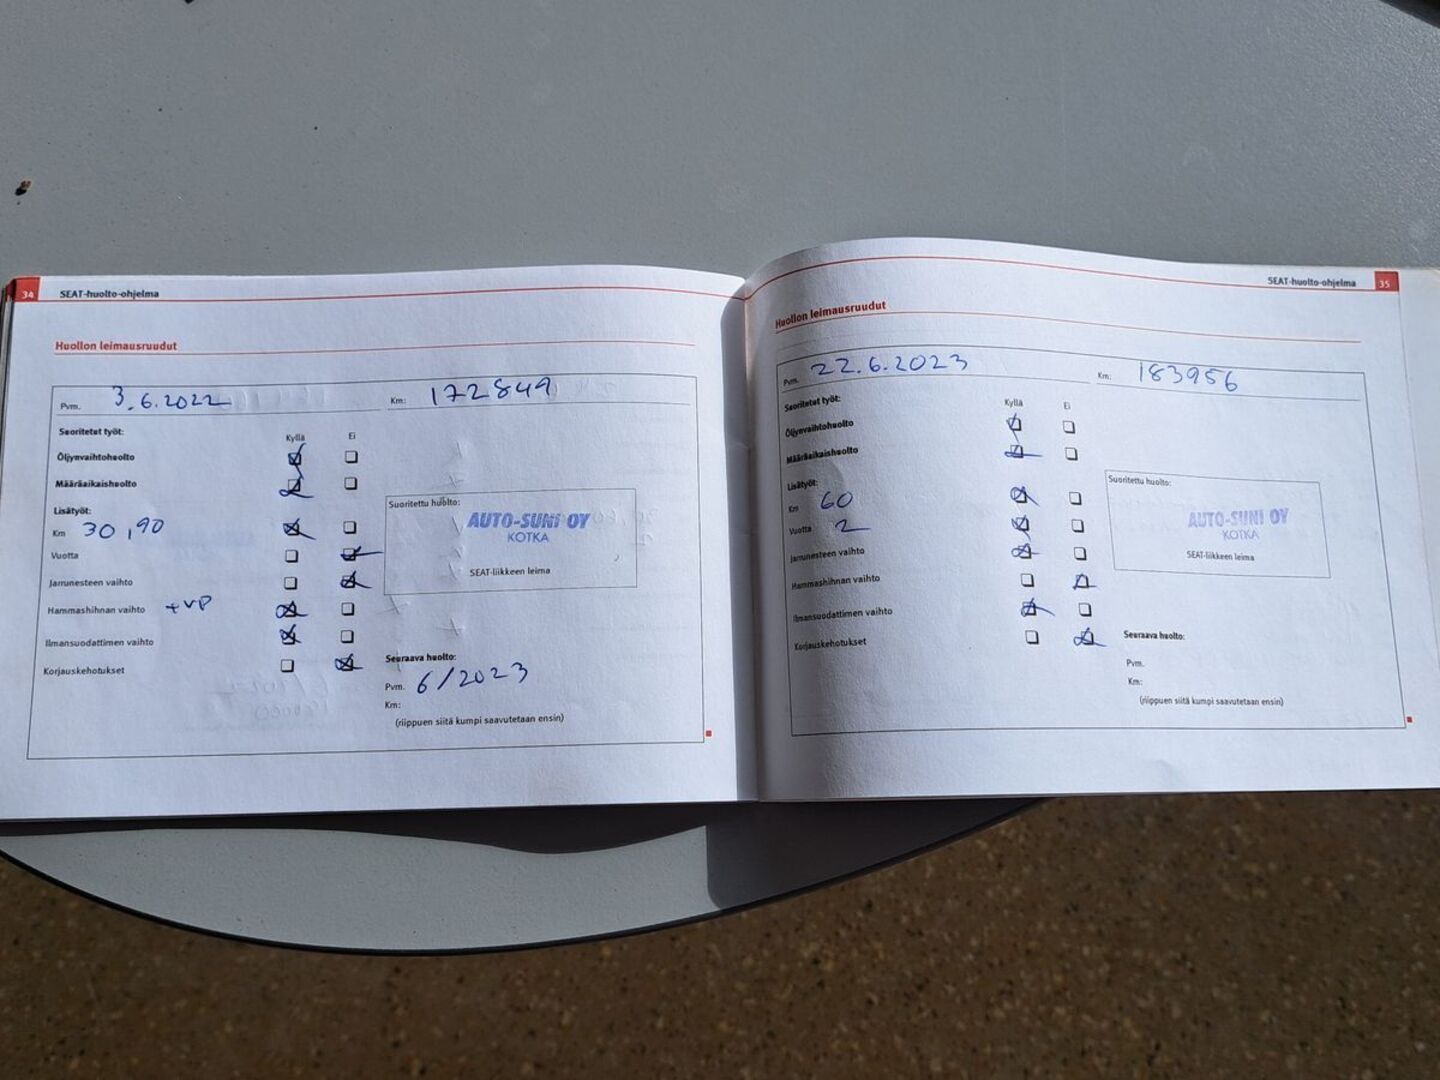 34 SEAT-huolto-ohjelma
Huollon leimausruudut
Pvm. 3.6.2022 Km: 172849
Suoritetut työt:
Kyllä Ei
Öljynvaihtohuolto
Määräaikaishuolto
Lisätyöt:
Km 30,90
Vuotta
Jarrunesteen vaihto
Hammashihnan vaihto +VP
Ilmansuodattimen vaihto
Korjauskehotukset
Suoritettu huolto:
AUTO-SUNI OY
KOTKA
SEAT-liikkeen leima
Seuraava huolto:
Pvm. 6/2023
Km:
(riippuen siitä kumpi saavutetaan ensin)
SEAT-huolto-ohjelma 35
Huollon leimausruudut
Pvm. 22.6.2023 Km: 183956
Suoritetut työt:
Kyllä Ei
Öljynvaihtohuolto
Määräaikaishuolto
Lisätyöt:
Km 60
Vuotta 2
Jarrunesteen vaihto
Hammashihnan vaihto
Ilmansuodattimen vaihto
Korjauskehotukset
Suoritettu huolto:
AUTO-SUNI OY
KOTKA
SEAT-liikkeen leima
Seuraava huolto:
Pvm.
Km:
(riippuen siitä kumpi saavutetaan ensin)